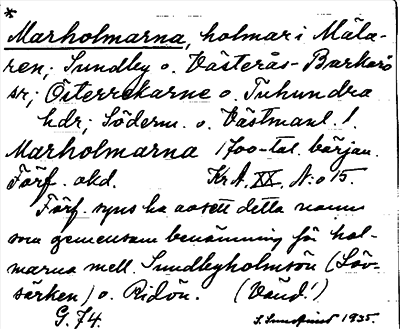 *
Marholmarna, holmar i Mäla-
ren; Sundby o. Västerås-Barkarö
sr; Österrekarne o. Tuhundra
hdr; Söderm. o. Västmanl. l.
Marholmarna 1700-tal. början.
Förf. okd. Kr.A. XX, N:o 15.
Förf. syns ha avsett detta namn
som gemensam benämning för hol-
marna mell. Sundbyholmsön (Löv-
särken) o. Ridön. (Vänd!)
G. 74. 1935.